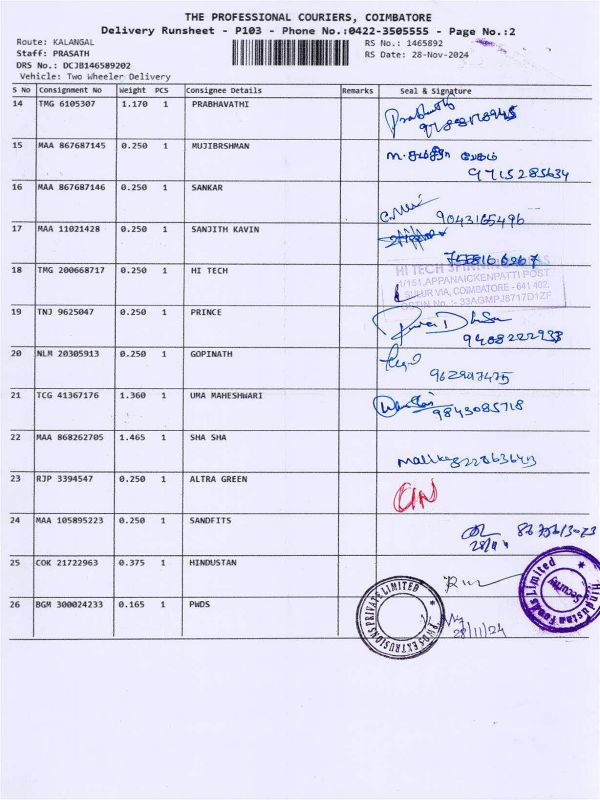 THE PROFESSIONAL COURIERS, COIMBATORE
Delivery Runsheet - P103 - Phone No.:0422-3505555 - Page No.:2
Route: KALANGAL
RS No.: 1465892
Staff: PRASATH
RS Date: 28-Nov-2024
DRS No.: DCJB146589202
Vehicle: Two Wheeler Delivery
S No Consignment No Weight PCS Consignee Details Remarks Seal & Signature
14 TMG 6105307 1.170 1 PRABHAVATHI
15 MAA 867687145 0.250 1 MUJIBRSHMAN
9715285634
16 MAA 867687146 0.250 1 SANKAR
9043165496
17 MAA 11021428 0.250 1 SANJITH KAVIN
18 TMG 200668717 0.250 1 HI TECH
HI TECH
1/151,APPANAICKENPATTI POST
SULUR VIA, COIMBATORE - 641 402.
GSTIN No. :- 33AGMPJ8717D1ZF
19 TNJ 9625047 1 0.250 1 PRINCE
9408222933
20 NLM 20305913 0.250 1 GOPINATH
21 TCG 41367176 1.360 1 UMA MAHESHWARI
9843085718
22 MAA 868262705 1.465 1 SHA SHA
23 RJP 3394547 0.250 1 ALTRA GREEN
24 MAA 105895223 0.250 1 SANDFITS
25 COK 21722963 0.375 1 HINDUSTAN
Hindustan Foods Limited
Security
26 BGM 300024233 0.165 1 PWDS
PWDS EXTRUSIONS PRIVATE LIMITED
28/11/24